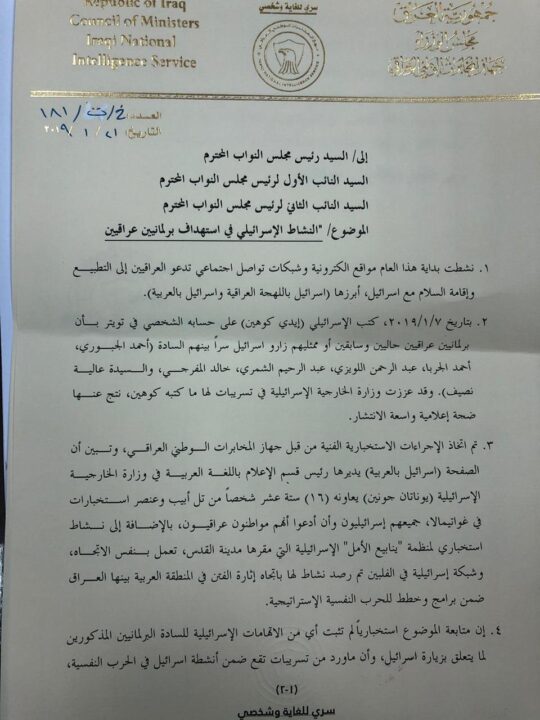 سري للغاية وشخصي
Republic of Iraq
Council of Ministers
Iraqi National
Intelligence Service
جمهورية العراق
مجلس الوزراء
جهاز المخابرات الوطني العراقي
العدد: خ/ت/١٨١
التاريخ: ٢١/١/٢٠١٩
إلى/ السيد رئيس مجلس النواب المحترم
السيد النائب الأول لرئيس مجلس النواب المحترم
السيد النائب الثاني لرئيس مجلس النواب المحترم
الموضوع/ "النشاط الإسرائيلي في استهداف برلمانيين عراقيين
١. نشطت بداية هذا العام مواقع الكترونية وشبكات تواصل اجتماعي تدعو العراقيين إلى التطبيع
وإقامة السلام مع اسرائيل، أبرزها (اسرائيل باللهجة العراقية واسرائيل بالعربية).
٢. بتاريخ ٢٠١٩/١/٧، كتب الإسرائيلي (إيدي كوهين) على حسابه الشخصي في تويتر بأن
برلمانيين عراقيين حاليين وسابقين أو ممثليهم زارو اسرائيل سراً بينهم السادة (أحمد الجبوري،
أحمد الجربا، عبد الرحمن اللويزي، عبد الرحيم الشمري، خالد المفرجي، والسيدة عالية
نصيف). وقد عززت وزارة الخارجية الإسرائيلية في تسريبات لها ما كتبه كوهين، نتج عنها
ضجة إعلامية واسعة الانتشار.
٣. تم اتخاذ الإجراءات الاستخبارية الفنية من قبل جهاز المخابرات الوطني العراقي، وتبين أن
الصفحة (اسرائيل بالعربية) يديرها رئيس قسم الإعلام باللغة العربية في وزارة الخارجية
الإسرائيلية (يوناتان جونين) يعاونه (١٦) ستة عشر شخصاً من تل أبيب وعنصر استخبارات
في غواتيمالا، جميعهم إسرائيليون وأن أدعوا أنهم مواطنون عراقيون، بالإضافة إلى نشاط
استخباري لمنظمة "ينابيع الأمل" الإسرائيلية التي مقرها مدينة القدس، تعمل بنفس الاتجاه،
وشبكة إسرائيلية في الفلبين تم رصد نشاط لها بإتجاه إثارة الفتن في المنطقة العربية بينها العراق
ضمن برامج وخطط للحرب النفسية الإستراتيجية.
٤. إن متابعة الموضوع استخبارياً لم تثبت أي من الاتهامات الإسرائيلية للسادة البرلمانيين المذكورين
لما يتعلق بزيارة اسرائيل، وأن ماورد من تسريبات تقع ضمن أنشطة اسرائيل في الحرب النفسية،
(١-٢)
سري للغاية وشخصي